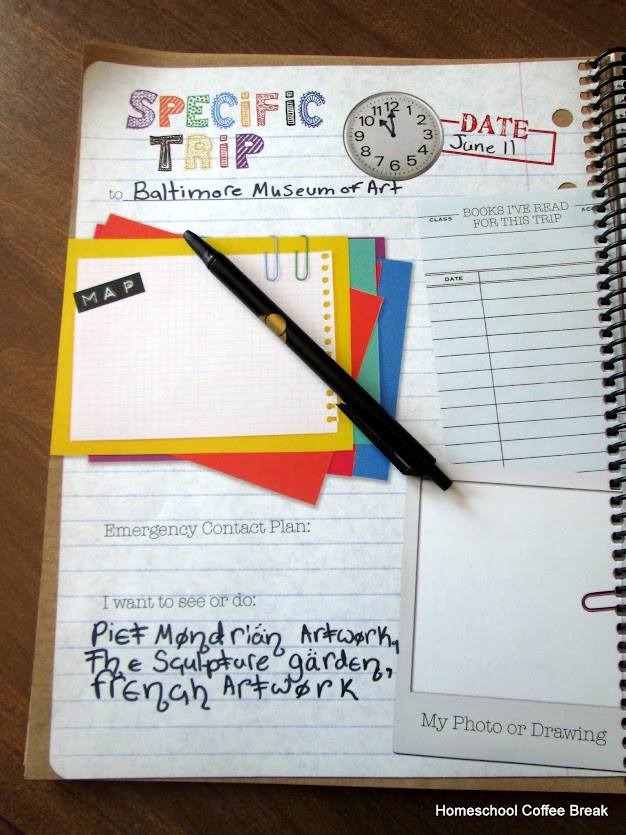 SPECiFiC
TRiP
DATE
June 11
to Baltimore Museum of Art
12
1
2
3
4
5
6
7
8
9
10
11
BOOKS I'VE READ
CLASS FOR THIS TRIP
DATE
MAP
Emergency Contact Plan:
I want to see or do:
Piet Møndriän Artwork,
The Sculpture gärden,
french Artwørk
My Photo or Drawing
Homeschool Coffee Break